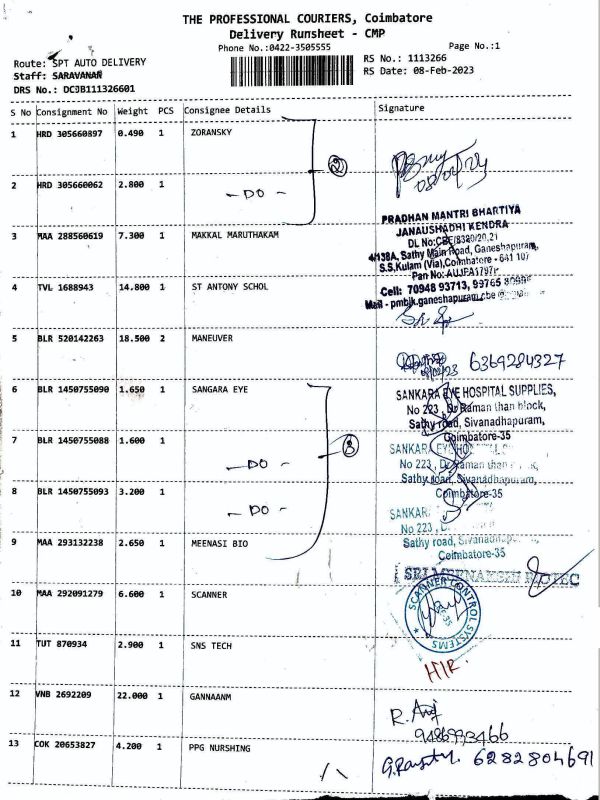 THE PROFESSIONAL COURIERS, Coimbatore
Delivery Runsheet - CMP
Phone No.:0422-3505555
Page No.:1
Route: SPT AUTO DELIVERY
RS No.: 1113266
Staff: SARAVANAN
RS Date: 08-Feb-2023
DRS No.: DCJB111326601
S No Consignment No Weight PCS Consignee Details Signature
1 HRD 305660897 0.490 1 ZORANSKY
2
2 HRD 305660062 2.800 1 - DO -
3 MAA 288560619 7.300 1 MAKKAL MARUTHAKAM
PRADHAN MANTRI BHARTIYA
JANAUSHADHI KENDRA
DL No:CBE/8380/20,21
4/138A, Sathy Main Road, Ganeshapuram,
S.S.Kulam (Via),Coimbatore - 641 107
Pan No:
Cell: 70948 93713, 99765
Mail - pmbjk.ganeshapuram.cbe
4 TVL 1688943 14.800 1 ST ANTONY SCHOL
5 BLR 520142263 18.500 2 MANEUVER
6369284327
6 BLR 1450755090 1.650 1 SANGARA EYE
SANKARA EYE HOSPITAL SUPPLIES,
No 223, Dr Raman than block,
Sathy road, Sivanadhapuram,
Coimbatore-35
7 BLR 1450755088 1.600 1 - DO -
3
SANKARA EYE
No 223, Dr Raman than
Sathy road, Sivanadhapuram,
Coimbatore-35
8 BLR 1450755093 3.200 1 - DO -
SANKAR
No 223
Sathy road,
Coimbatore-35
9 MAA 293132238 2.650 1 MEENASI BIO
10 MAA 292091279 6.600 1 SCANNER
SCANNER CONTROL SYSTEMS
11 TUT 870934 2.900 1 SNS TECH
12 VNB 2692209 22.000 1 GANNAANM
9486993466
13 COK 20653827 4.200 1 PPG NURSHING
6282804691